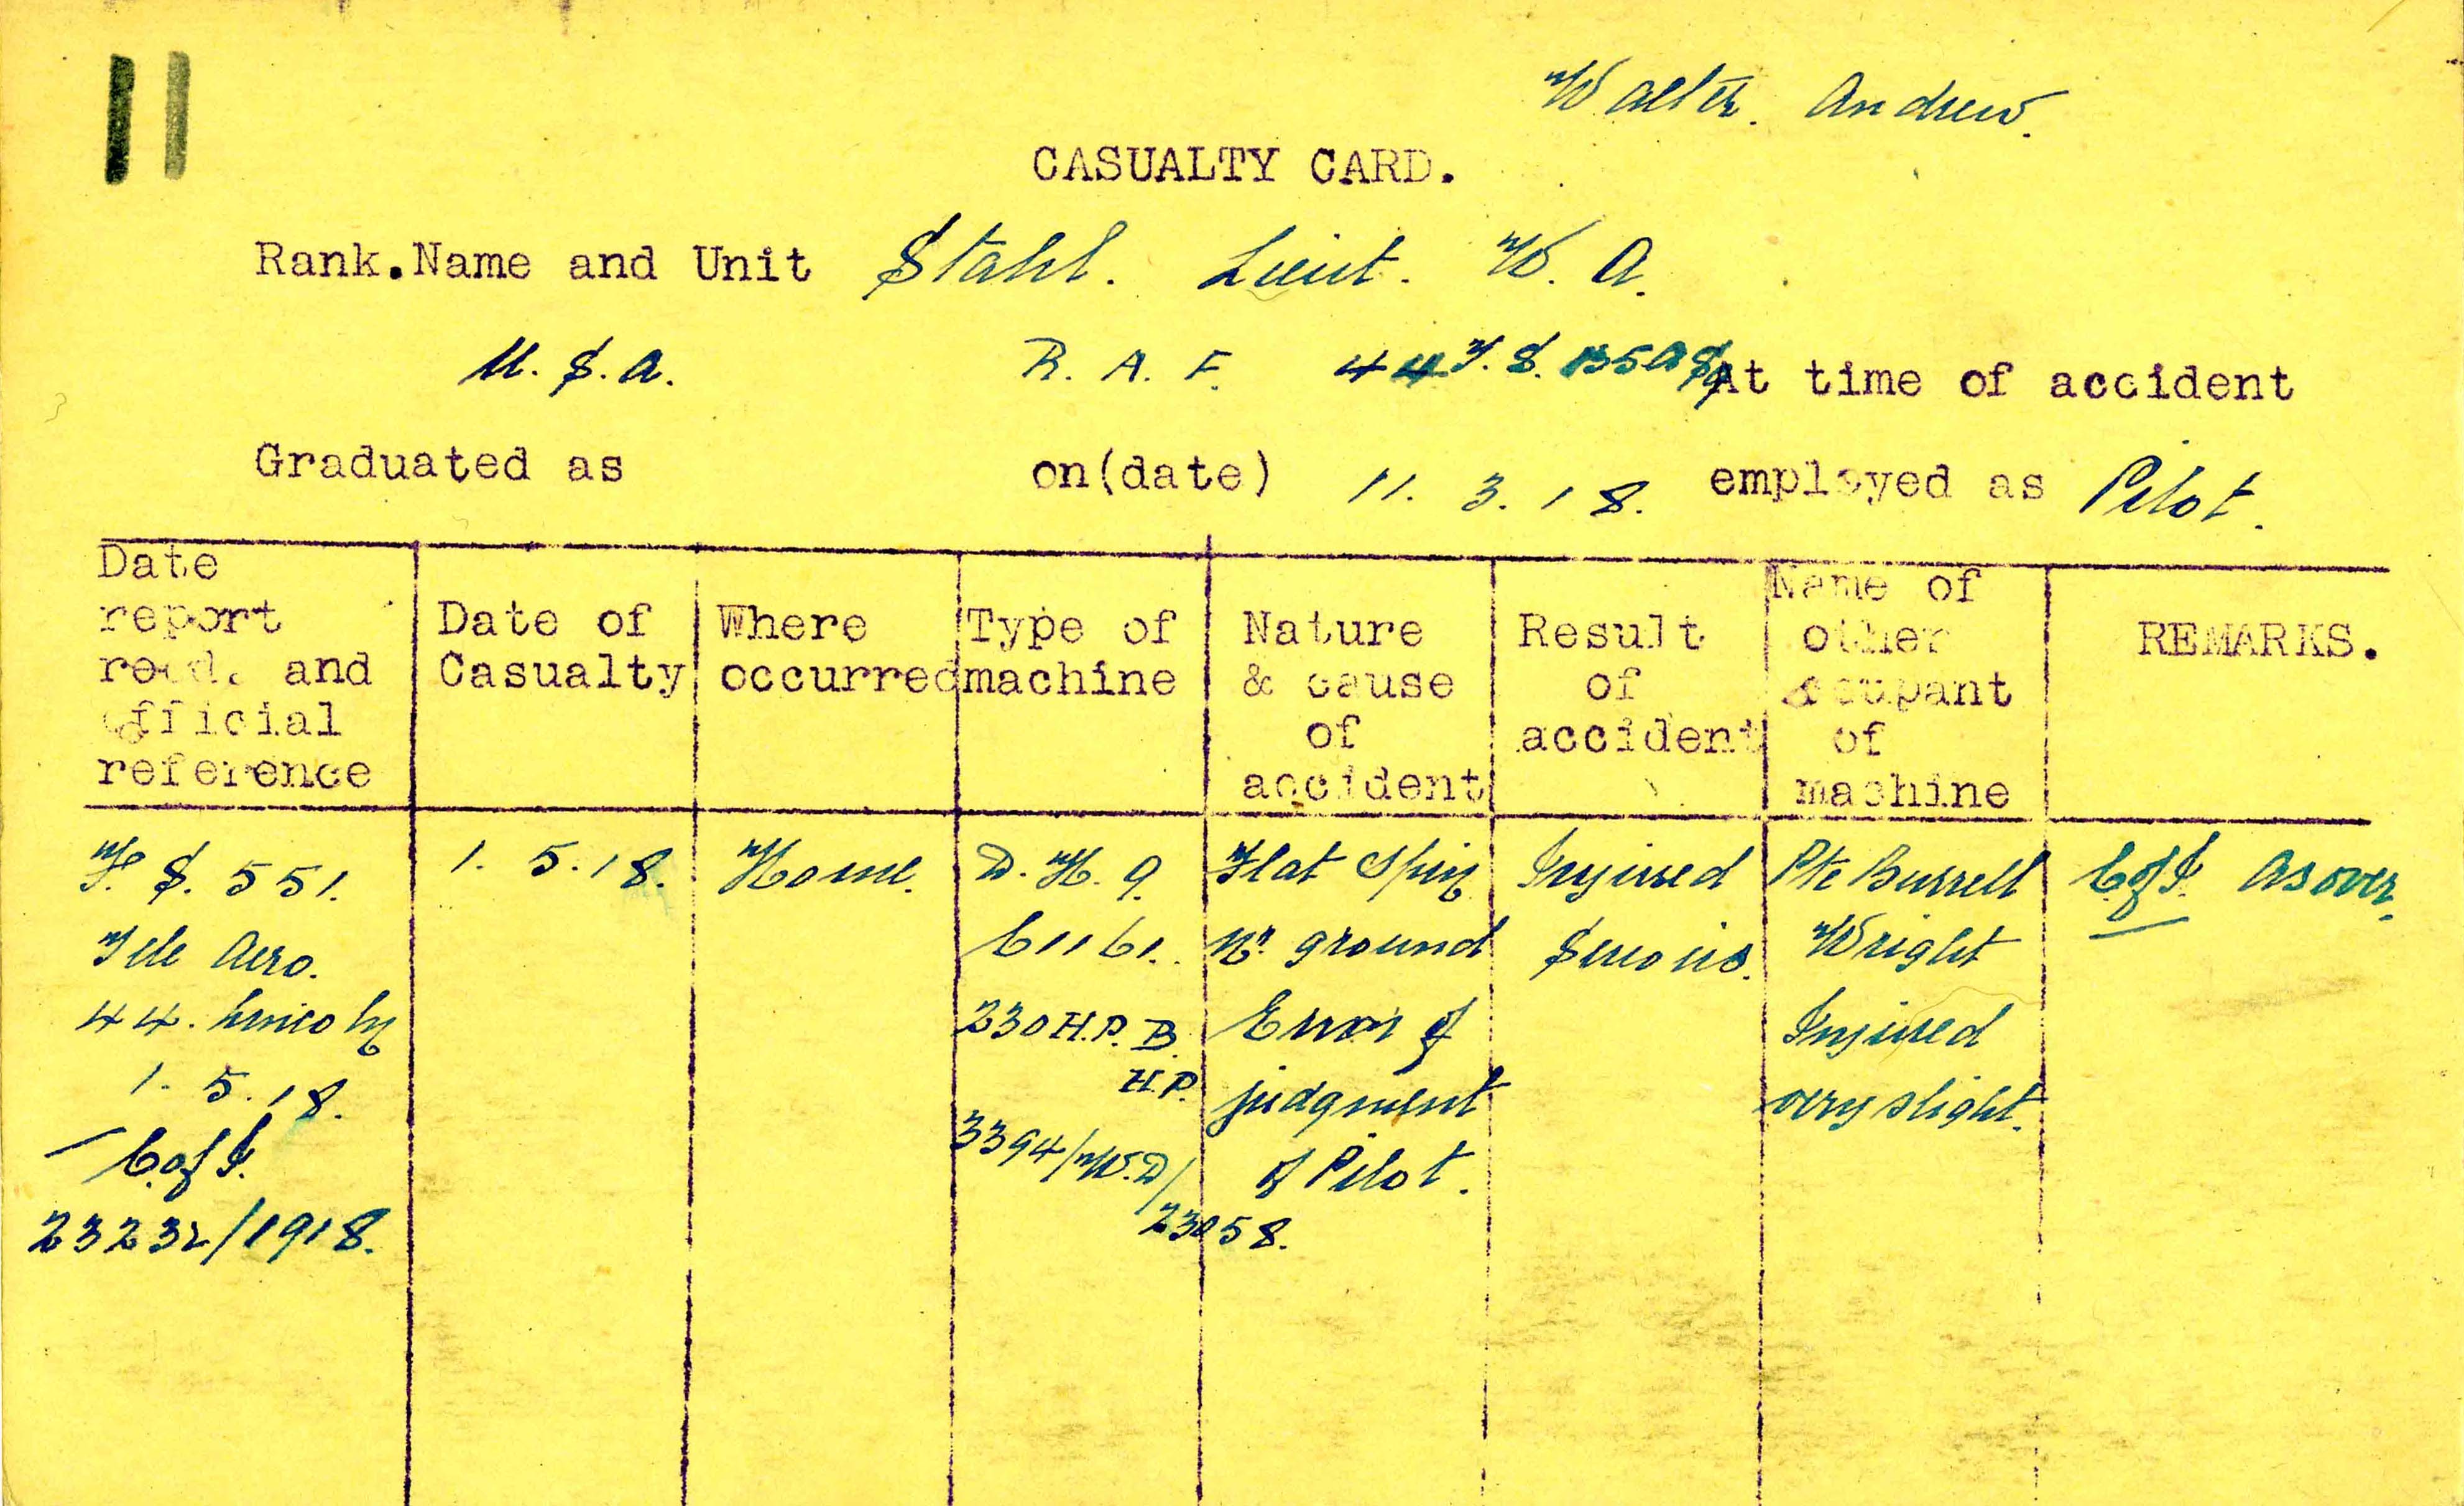 11
Walter. Andrew.
CASUALTY CARD.
Rank.Name and Unit Stahl. Lieut. W. A.
U.S.A. R.A.F. 44 T.S. At time of accident
Graduated as on(date) 11. 3. 18. employed as Pilot.
Date report recd. and official reference
Date of Casualty
Where occurred
Type of machine
Nature & cause of accident
Result of accident
Name of other occupant of machine
REMARKS.
F.S. 551.
Tele Aero.
44. Lincoln
1. 5. 18.
C.of I.
23232/1918.
1. 5. 18.
Home.
D.H.9.
C1161.
230 H.P. B.
H.P.
3394/W.D/
23058.
Flat Spin
Nr. ground
Error of
judgment
of Pilot.
Injured
Serious.
Pte Burrell
Wright
Injured
very slight.
C.of I. As over.